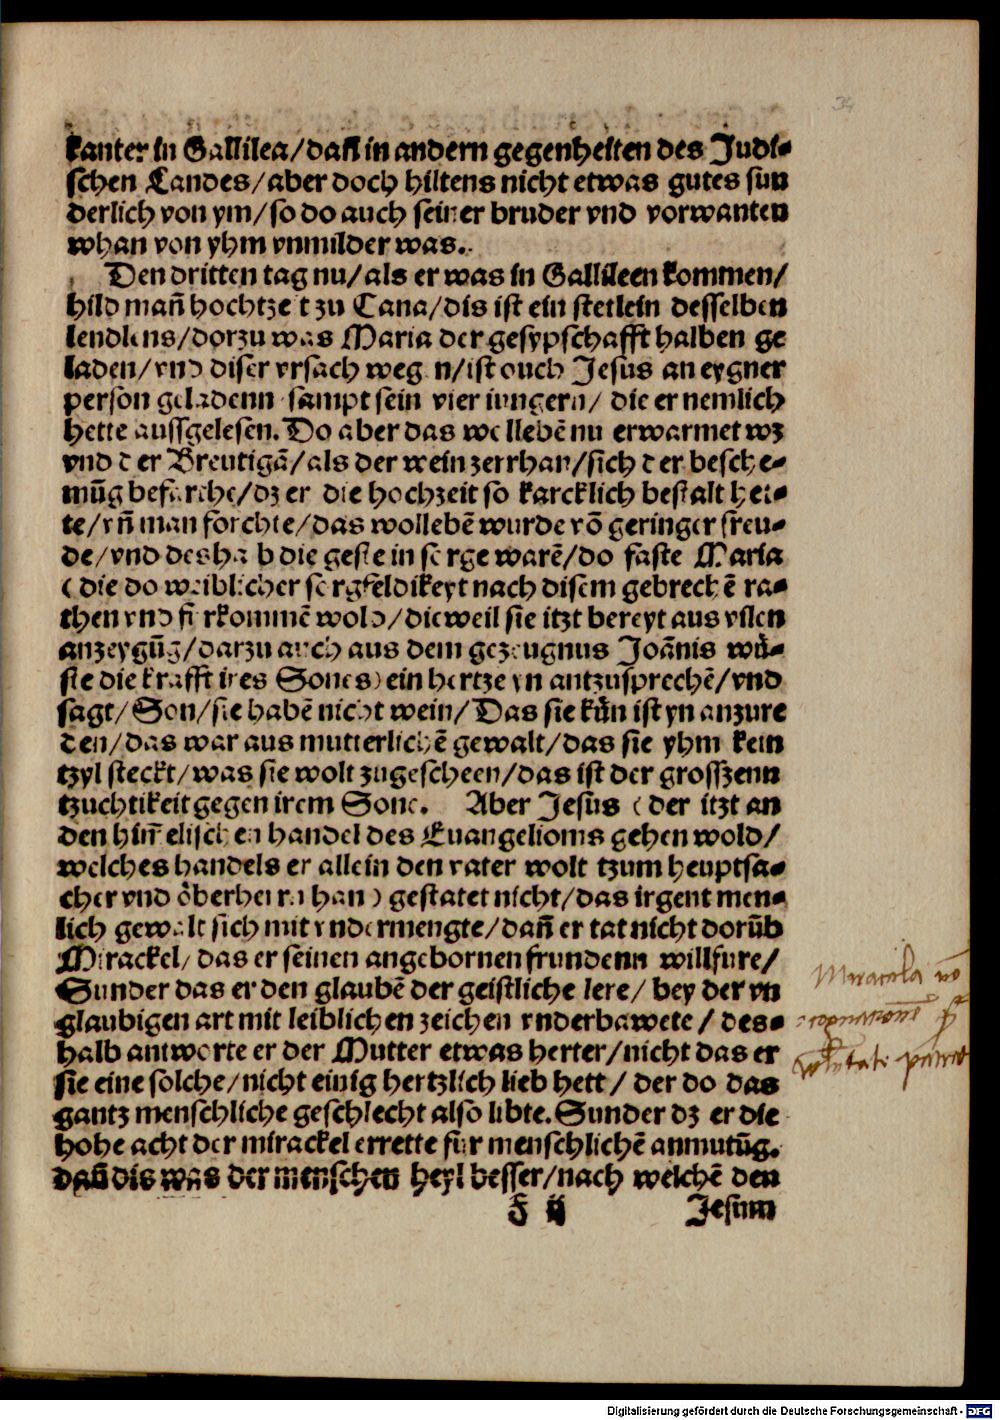 34
kanter in Gallilea/dan in andern gegenheiten des Judi-
schen Landes/aber doch hiltens nicht etwas gutes sun
derlich von ym/so do auch seiner bruder vnd vorwanten
whan von yhm vnmilder was.
Den dritten tag nu/als er was in Gallileen kommen/
hild mañ hochtzeit zu Cana/dis ist ein stetlein desselben
lendlens/dorzu was Maria der gesypschafft halben ge
laden/vnd diser vrsach wegen/ist ouch Jesus an eygner
person geladenn sampt sein vier iungern/ die er nemlich
hette aussgelesen. Do aber das wollebē nu erwarmet wz
vnd der Breutigā/als der wein zerrhan/sich der besche-
mūg befarche/dz er die hochzeit so karcklich bestalt het-
te/vñ man forchte/das wollebē wurde vō geringer freu-
de/vnd deshalb die geste in sorge warē/do faste Maria
(die do weiblicher sorgfeldikeyt nach disem gebrechē ra-
then vnd furkommē wold/dieweil sie itzt bereyt aus vilen
anzeygūg/darzu auch aus dem gezeugnus Joānis wü-
ste die krafft ires Sones) ein hertze yn antzusprechē/vnd
sagt/Son/sie habē nicht wein/Das sie kün ist yn anzure
den/das war aus mutterlichē gewalt/das sie yhm kein
tzyl steckt/was sie wolt zugescheen/das ist der grosszenn
tzuchtikeit gegen irem Sone. Aber Jesus (der itzt an
den himelischen handel des Euangelioms gehen wold/
welches handels er allein den vater wolt tzum heuptsa-
cher vnd öberhern han) gestatet nicht/das irgent men-
lich gewalt sich mit vndermengte/dañ er tat nicht dorūb
Mirackel/das er seinen angebornen frundenn willfure/
Sunder das er den glaubē der geistliche lere/ bey der vn
glaubigen art mit leiblichen zeichen vnderbawete/ des-
halb antworte er der Mutter etwas herter/nicht das er
sie eine solche/nicht einig hertzlich lieb hett/ der do das
gantz menschliche geschlecht also libte. Sunder dz er die
hohe acht der mirackel errette fur menschlichē anmutūg.
dañ dis was der menschen heyl besser/nach welchē den
F ij Jesum
Miracula nō
Digitalisierung gefördert durch die Deutsche Forschungsgemeinschaft - DFG